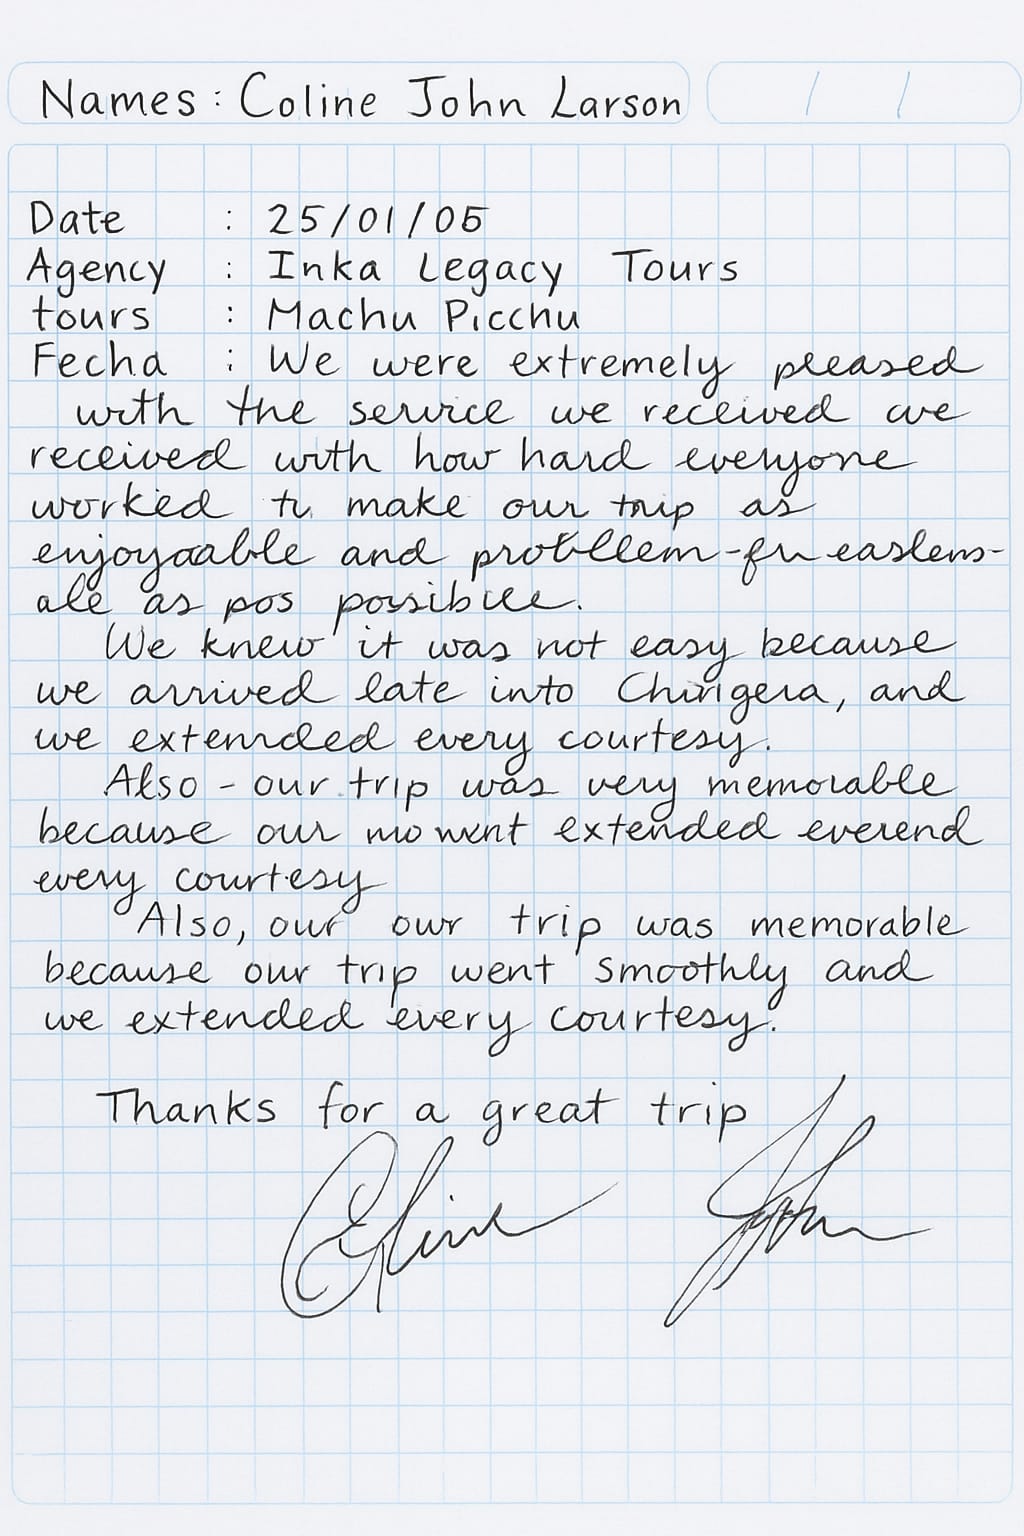 Names: Coline John Larson / /
Date : 25/01/05
Agency : Inka Legacy Tours
tours : Machu Picchu
Fecha : We were extremely pleased
with the service we received we
received with how hard everyone
worked to make our trip as
enjoyaable and probllem-
ale as pos possiblee.
We knew it was not easy because
we arrived late into Chirigera, and
we extemded every courtesy.
Also - our trip was very memorable
because our mo went extended everend
every courtesy
Also, our our trip was memorable
because our trip went smoothly and
we extended every courtesy.
Thanks for a great trip
Coline John